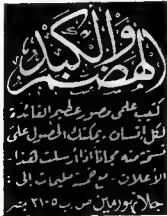 الهضم والكبد
كتيب علمي مصور عظيم الفائدة
لكل انسان. يمكنك الحصول على
نسخة منه مجاناً إذا أرسلت هذا
الاعلان. مع خمسة مليمات إلى:
جلانهورمين ص. ب ٢١٠٥ مصر